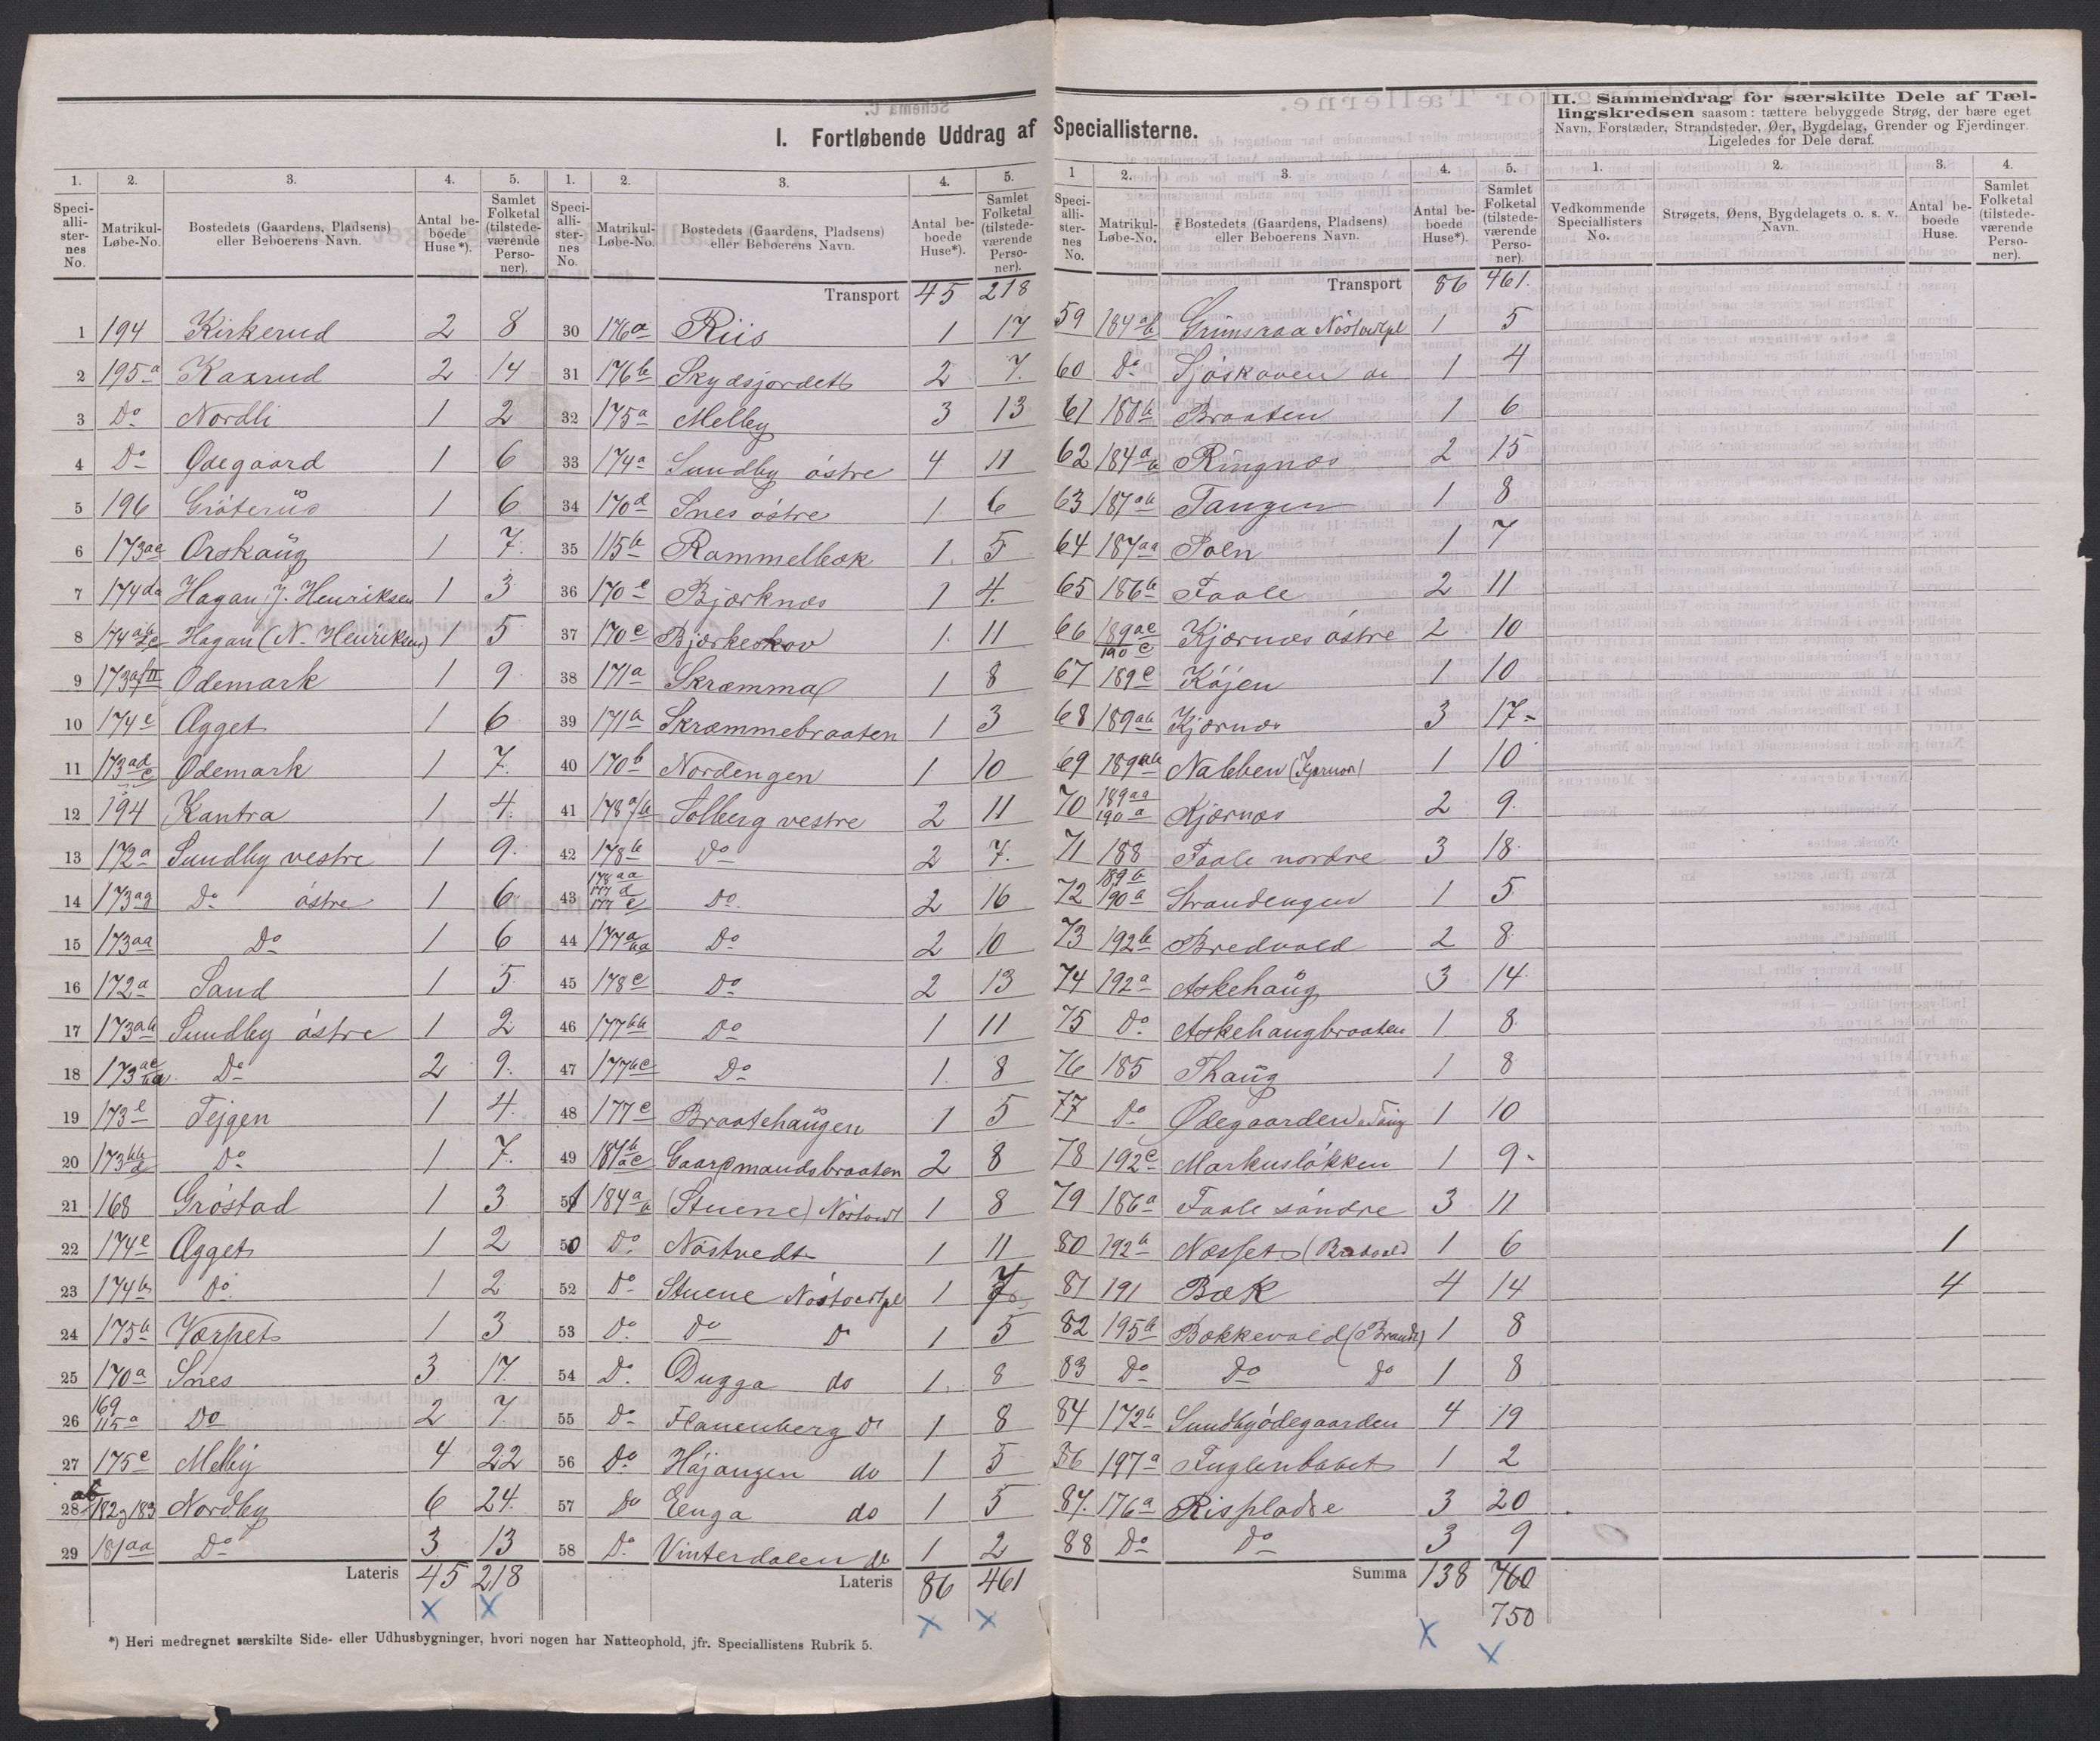 I. Fortløbende Uddrag af Speciallisterne.
II. Sammendrag for særskilte Dele af Tæl-
lingskredsen saasom: tættere bebyggede Strøg, der bære eget
Navn, Forstæder, Strandsteder, Øer, Bygdelag, Grender og Fjerdinger.
Ligeledes for Dele deraf.
1. 2. 3. 4. 5.
Speci-alli-ster-nes No. Matrikul-Løbe-No. Bostedets (Gaardens, Pladsens) eller Beboerens Navn. Antal be-boede Huse*). Samlet Folketal (tilstede-værende Perso-ner).
1 194 Kirkerud 2 8
2 195a Kaxrud 2 14
3 Do Nordli 1 2
4 Do Ødegaard 1 6
5 196 Gróterud 1 6
6 173ae Orskaug 1 7
7 174da Hagan J. Henriksen 1 3
8 Hagan (N. Henriksen) 1 5
9 173afII Ødemark 1 9
10 174e Ægget 1 6
11 173ad Ødemark 1 7
12 194 Kantra 1 4
13 172a Sundby vestre 1 9
14 173ag Do óstre 1 6
15 173aa Do 1 6
16 172a Sand 1 5
17 173ab Sundby óstre 1 2
18 Do 2 9
19 173e Tejgen 1 4
20 Do 1 7
21 168 Gróstad 1 3
22 174e Ægget 1 2
23 174b Do 1 2
24 175b Værpet 1 3
25 170a Snes 3 17
26 169 115a Do 2 7
27 175c Melby 4 22
28 ab 182 183 Nordby 6 24
29 181aa Do 3 13
Lateris 45 218
1. 2. 3. 4. 5.
Speci-alli-ster-nes No. Matrikul-Løbe-No. Bostedets (Gaardens, Pladsens) eller Beboerens Navn. Antal be-boede Huse*). Samlet Folketal (tilstede-værende Perso-ner).
Transport 45 218
30 176a Riis 1 17
31 176b Skydsjordet 2 7
32 175a Melby 3 13
33 174a Sundby óstre 4 11
34 170d Snes óstre 1 6
35 115b Rammelbæk 1 5
36 170e Bjørknes 1 4
37 170c Bjørkeskov 1 11
38 171a Skræmma 1 8
39 171b Skræmmebraaten 1 3
40 170b Nordengen 1 10
41 178a/b Solberg vestre 2 11
42 178b Do 2 7
43 178aa 177d 177e Do 2 16
44 177a Do 2 10
45 178c Do 2 13
46 177bb Do 1 11
47 177bc Do 1 8
48 177c Braatehaugen 1 5
49 Gaardmandsbraaten 2 8
51 184a (Stuene) Nóstvedt 1 8
50 Do Nóstvedt 1 11
52 Do Stuene Nóstvedtpl 1 7
53 Do Do Do 1 5
54 Do Dugga do 1 8
55 Do Flauenberg Do 1 8
56 Do Hójangen do 1 5
57 Do Enga do 1 5
58 Do Vinterdalen do 1 2
Lateris 86 461
1 2. 3. 4. 5.
Speci-alli-ster-nes No. Matrikul-Løbe-No. Bostedets (Gaardens, Pladsens) eller Beboerens Navn. Antal be-boede Huse*). Samlet Folketal (tilstede-værende Perso-ner).
Transport 86 461
59 184ab Grimsraa Nóstvedtpl 1 5
60 Do Sjóskoven do 1 4
61 180b Braaten 1 6
62 184a Ringnes 2 15
63 187ab Tangen 1 8
64 187aa Poln 1 7
65 186b Faale 2 11
66 189ac 190c Kjærnes óstre 2 10
67 189c Kójen 1 10
68 189ab Kjærnes 3 17
69 189ab Nabben (Kjærnes) 1 10
70 189aa 190a Kjærnes 2 9
71 188 Faale nordre 3 18
72 189b 190b Strandengen 1 5
73 192b Bredvold 2 8
74 192a Askehaug 3 14
75 Do Askehaugbraaten 1 8
76 185 Thaug 1 8
77 Do Ødegaarden u Taug 1 10
78 192c Markuslókken 1 9
79 186a Faale sóndre 3 11
80 192b Næsset (Bredvold 1 6
81 191 Bæk 4 14
82 195b Bakkevold (Braate) 1 8
83 Do Do Do 1 8
84 172b Sundbyódegaarden 4 19
86 197a Fuglenbobet 1 2
87 176a Rispladse 3 20
88 Do Do 3 9
Summa 138 760
750
1. 2. 3. 4.
Vedkommende Speciallisters No. Strøgets, Øens, Bygdelagets o. s. v. Navn. Antal be-boede Huse. Samlet Folketal (tilstede-værende Perso-ner).
1
4
*) Heri medregnet særskilte Side- eller Udhusbygninger, hvori nogen har Natteophold, jfr. Speciallistens Rubrik 5.